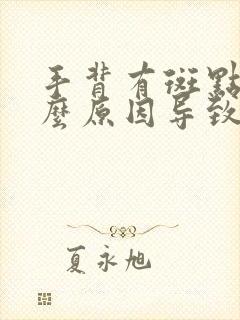 手背有斑點
麼原因导致
夏永旭